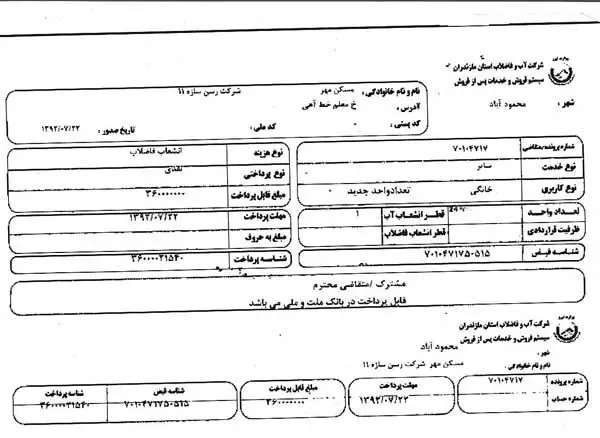 شرکت آب و فاضلاب استان مازندران
سیستم فروش و خدمات پس از فروش
شهر : محمود آباد
نام و نام خانوادگی : مسکن مهر شرکت رسن سازه ۱۱
آدرس : خ معلم خط آهی
کد پستی : کد ملی : تاریخ صدور : ۱۳۹۲/۰۷/۲۲
شماره پرونده/متقاضی ۷۰۱۰۴۷۱۷
نوع خدمت سایر
نوع کاربری خانگی تعدادواحد جدید ۰
تعداد واحد قطر انشعاب آب ۱
ظرفیت قراردادی قطر انشعاب فاضلاب
شناسه قبض ۷۰۱۰۴۷۱۷۵۰۵۱۵
نوع هزینه انشعاب فاضلاب
نوع پرداختی نقدی
مبلغ قابل پرداخت ۳۶۰۰۰۰۰۰۰
مهلت پرداخت ۱۳۹۲/۰۷/۲۲
مبلغ به حروف
شناسه پرداخت ۳۶۰۰۰۰۲۱۵۴۰
مشترک /متقاضی محترم
قابل پرداخت در بانک ملت و ملی می باشد
شرکت آب و فاضلاب استان مازندران
سیستم فروش و خدمات پس از فروش
شهر : محمودی آباد
نام و نام خانوادگی : مسکن مهر شرکت رسن سازه ۱۱
شماره پرونده ۷۰۱۰۴۷۱۷
شماره حساب
مهلت پرداخت ۱۳۹۲/۰۷/۲۲
مبلغ قابل پرداخت ۳۶۰۰۰۰۰۰۰
شناسه قبض ۷۰۱۰۴۷۱۷۵۰۵۱۵
شناسه پرداخت ۳۶۰۰۰۰۲۱۵۴۰